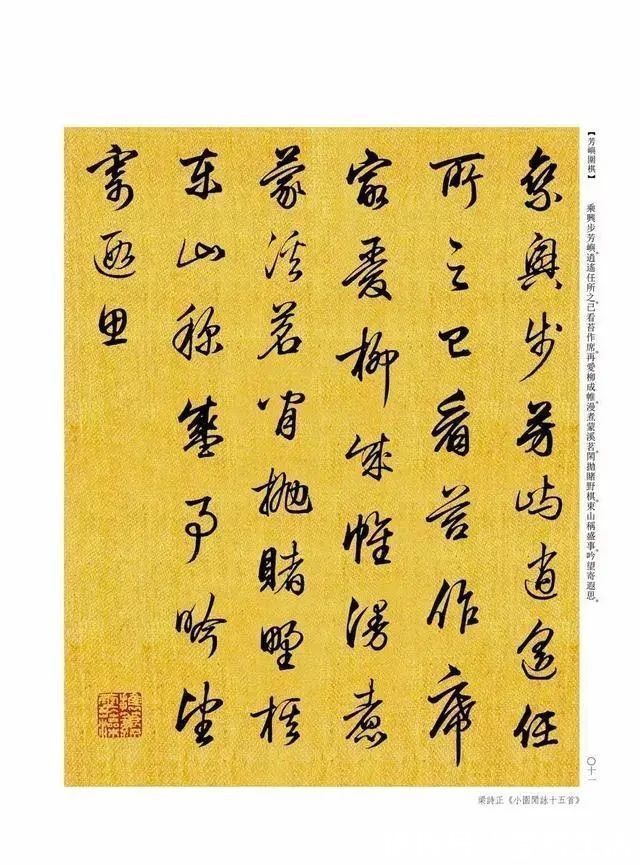 【芳嶼圍棋】
乘興步芳嶼。逍遙任所之。己看苔作席。再愛柳成帷。漫煮蒙溪茗。閑拋賭野棋。東山稱盛事。吟望寄遐思。
乘興步芳嶼逍遙任
所之已看苔作席
再愛柳成帷漫煮
蒙溪茗閑拋賭野棋
東山稱盛事吟望
寄遐思
〇十一
梁詩正《小園閑詠十五首》